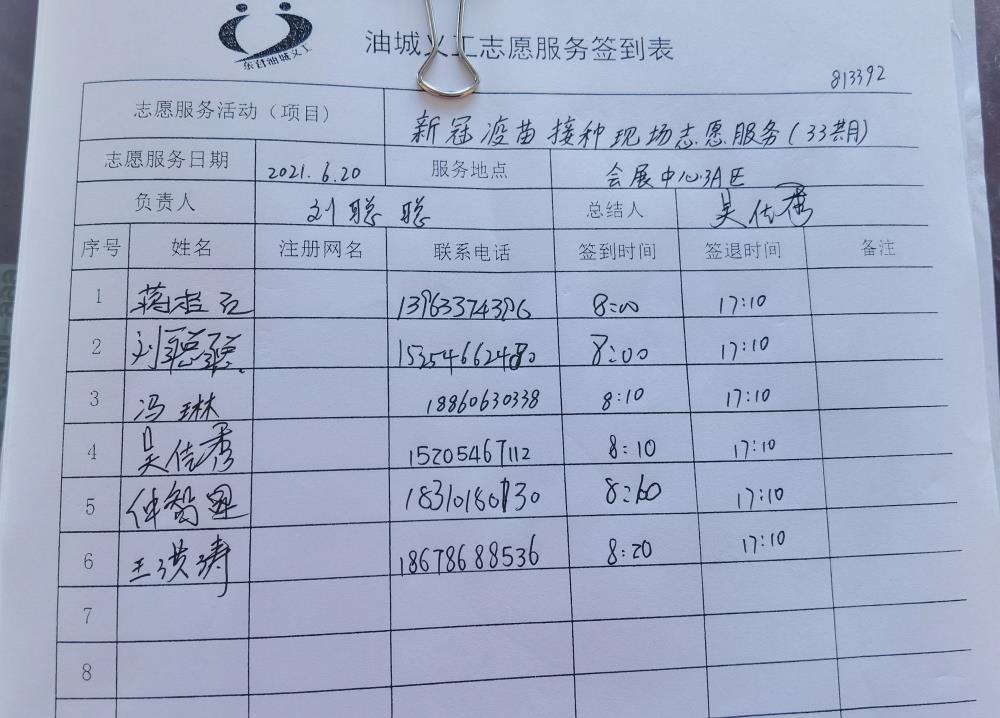 东营油城义工
油城义工志愿服务签到表
813392
志愿服务活动（项目） 新冠疫苗接种现场志愿服务(33期)
志愿服务日期 2021.6.20 服务地点 会展中心3A区
负责人 刘聪聪 总结人 吴佳秀
序号 姓名 注册网名 联系电话 签到时间 签退时间 备注
1 13963374396 8:00 17:10
2 刘聪聪 8:00 17:10
3 冯琳 18860630338 8:10 17:10
4 吴佳秀 15205467112 8:10 17:10
5 仲智 17:10
6 王洪涛 18678688536 8:20 17:10
7
8